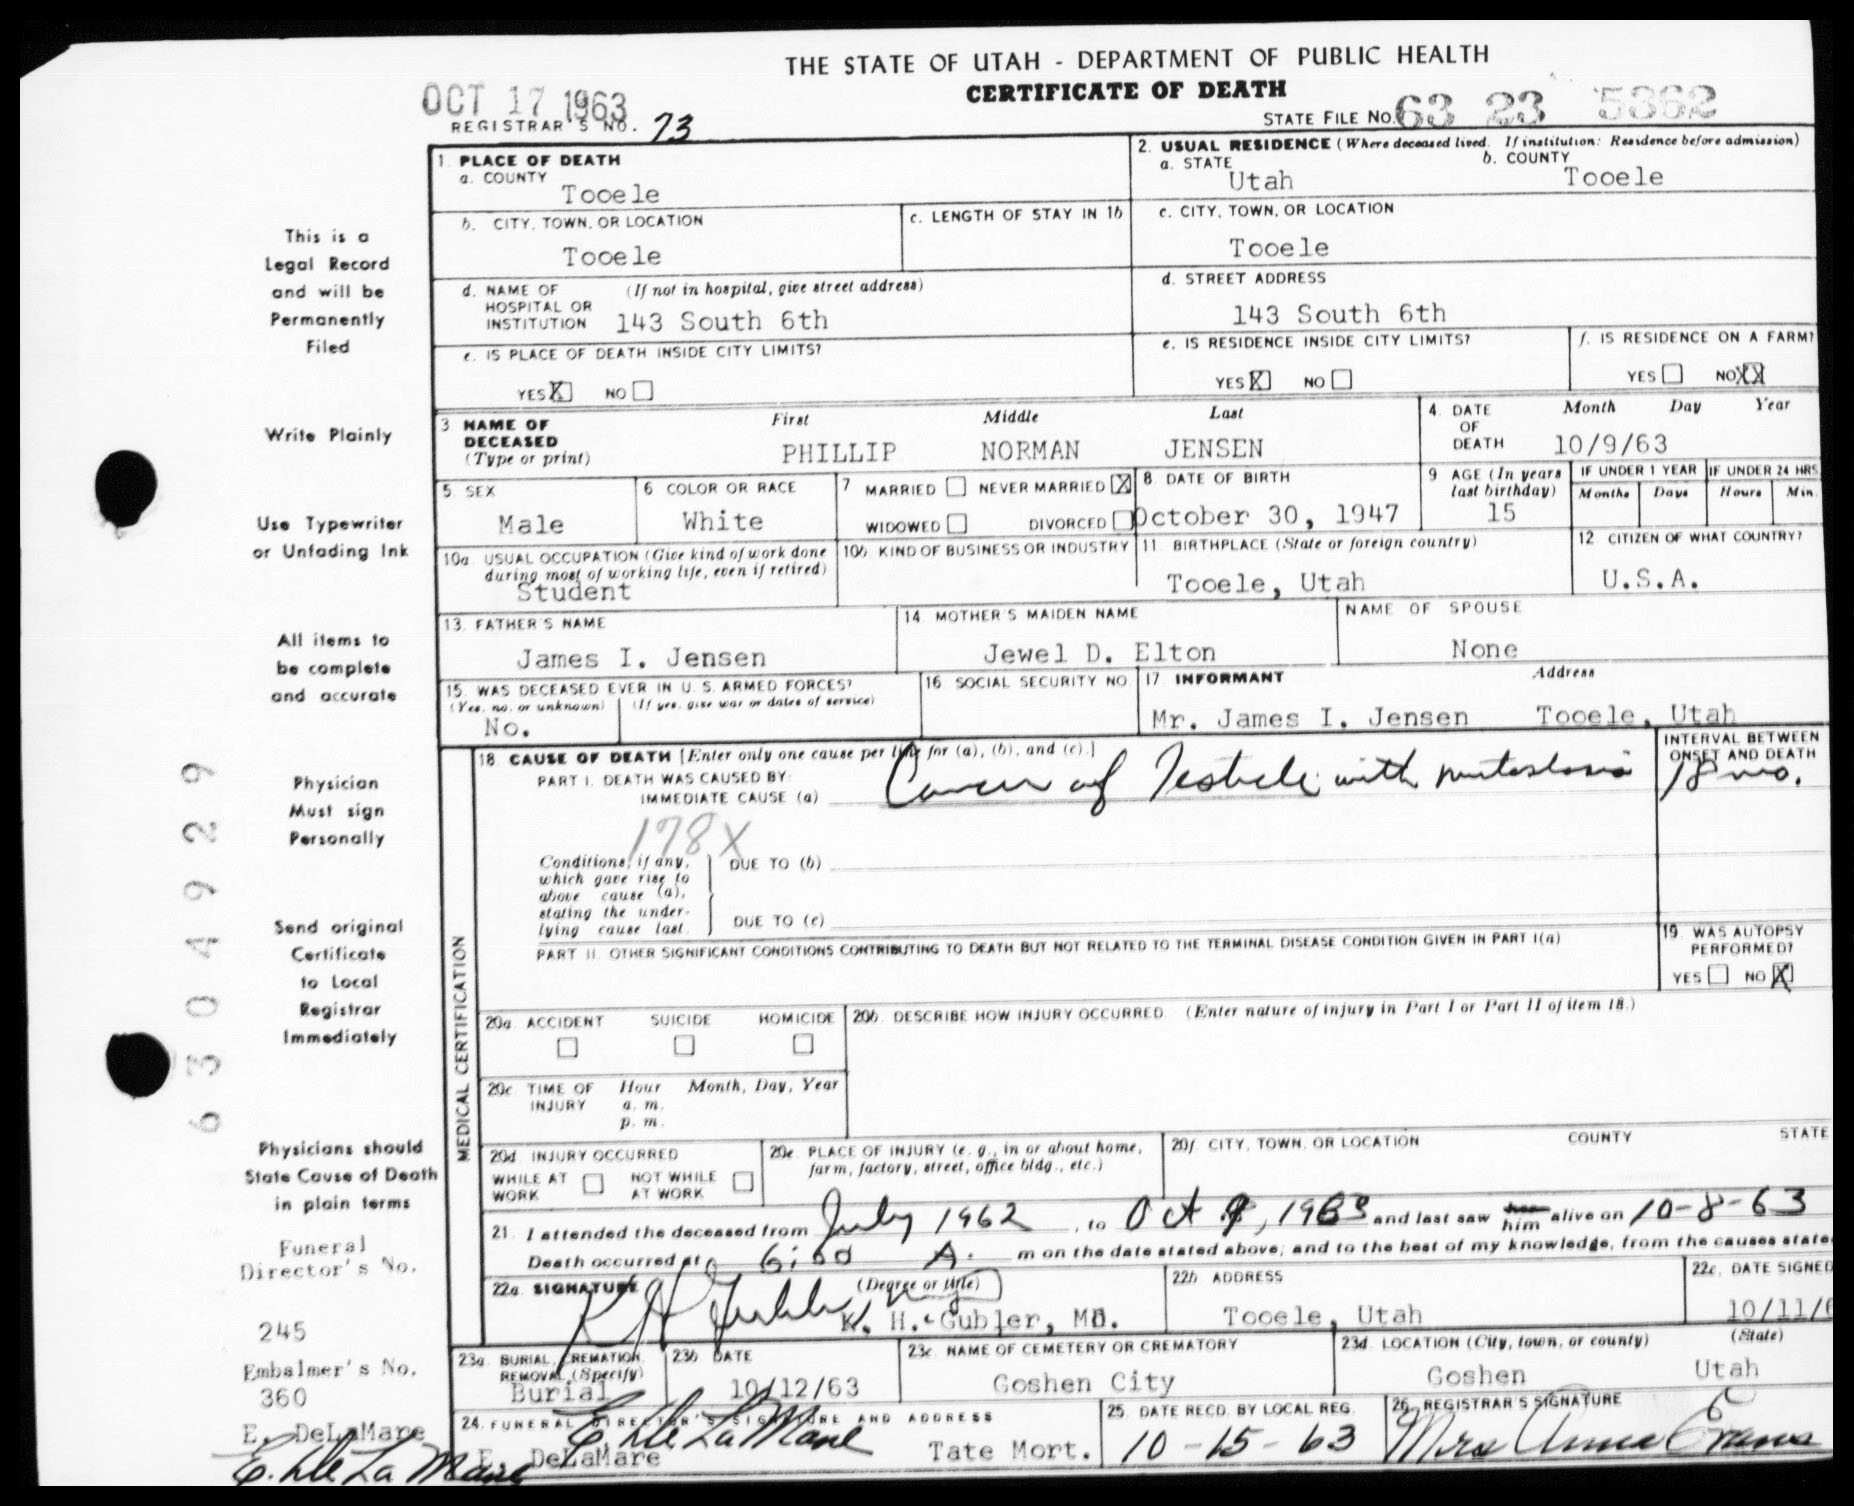 THE STATE OF UTAH - DEPARTMENT OF PUBLIC HEALTH
CERTIFICATE OF DEATH
OCT 17 1963
REGISTRAR'S NO. 73
STATE FILE NO. 63 23 5362
1. PLACE OF DEATH
a. COUNTY
Tooele
2. USUAL RESIDENCE (Where deceased lived. If institution: Residence before admission)
a. STATE b. COUNTY
Utah Tooele
b. CITY, TOWN, OR LOCATION
Tooele
c. LENGTH OF STAY IN 1b
c. CITY, TOWN, OR LOCATION
Tooele
d. NAME OF (If not in hospital, give street address)
HOSPITAL OR
INSTITUTION 143 South 6th
d. STREET ADDRESS
143 South 6th
e. IS PLACE OF DEATH INSIDE CITY LIMITS?
YES X NO
e. IS RESIDENCE INSIDE CITY LIMITS?
YES X NO
f. IS RESIDENCE ON A FARM?
YES NO XX
3 NAME OF
DECEASED
(Type or print)
First Middle Last
PHILLIP NORMAN JENSEN
4. DATE
OF
DEATH
Month Day Year
10/9/63
5. SEX
Male
6 COLOR OR RACE
White
7 MARRIED NEVER MARRIED X
WIDOWED DIVORCED
8 DATE OF BIRTH
October 30, 1947
9 AGE (In years
last birthday)
15
IF UNDER 1 YEAR
Months Days
IF UNDER 24 HRS.
Hours Min.
10a. USUAL OCCUPATION (Give kind of work done
during most of working life, even if retired)
Student
10b KIND OF BUSINESS OR INDUSTRY
11. BIRTHPLACE (State or foreign country)
Tooele, Utah
12. CITIZEN OF WHAT COUNTRY?
U.S.A.
13. FATHER'S NAME
James I. Jensen
14 MOTHER'S MAIDEN NAME
Jewel D. Elton
NAME OF SPOUSE
None
15. WAS DECEASED EVER IN U. S. ARMED FORCES?
(Yes, no, or unknown) (If yes, give war or dates of service)
No.
16 SOCIAL SECURITY NO.
17. INFORMANT Address
Mr. James I. Jensen Tooele, Utah
MEDICAL CERTIFICATION
18 CAUSE OF DEATH [Enter only one cause per line for (a), (b), and (c).]
PART I. DEATH WAS CAUSED BY:
IMMEDIATE CAUSE (a) Cancer of Testicle with metastasis
INTERVAL BETWEEN
ONSET AND DEATH
18 mo.
178X
Conditions, if any,
which gave rise to
above cause (a),
stating the under-
lying cause last.
DUE TO (b)
DUE TO (c)
PART II. OTHER SIGNIFICANT CONDITIONS CONTRIBUTING TO DEATH BUT NOT RELATED TO THE TERMINAL DISEASE CONDITION GIVEN IN PART I(a)
19. WAS AUTOPSY
PERFORMED?
YES NO X
20a. ACCIDENT SUICIDE HOMICIDE
20b. DESCRIBE HOW INJURY OCCURRED. (Enter nature of injury in Part I or Part II of item 18.)
20c TIME OF Hour Month, Day, Year
INJURY a. m.
p. m.
20d. INJURY OCCURRED
WHILE AT NOT WHILE
WORK AT WORK
20e. PLACE OF INJURY (e. g., in or about home,
farm, factory, street, office bldg., etc.)
20f. CITY, TOWN, OR LOCATION COUNTY STATE
21. I attended the deceased from July 1962, to Oct 9, 1963 and last saw her him alive on 10-8-63
Death occurred at 6:00 A. m on the date stated above; and to the best of my knowledge, from the causes state
22a. SIGNATURE (Degree or title)
K H Gubler
K. H. Gubler, MD.
22b ADDRESS
Tooele, Utah
22c. DATE SIGNED
10/11/6
23a. BURIAL, CREMATION,
REMOVAL (Specify)
Burial
23b DATE
10/12/63
23c. NAME OF CEMETERY OR CREMATORY
Goshen City
23d. LOCATION (City, town, or county) (State)
Goshen Utah
24. FUNERAL DIRECTOR'S SIGNATURE AND ADDRESS
E. DeLaMare
E. DeLaMare Tate Mort.
25. DATE RECD. BY LOCAL REG.
10-15-63
26. REGISTRAR'S SIGNATURE
Mrs Anna Evans
This is a
Legal Record
and will be
Permanently
Filed
Write Plainly
Use Typewriter
or Unfading Ink
All items to
be complete
and accurate
Physician
Must sign
Personally
Send original
Certificate
to Local
Registrar
Immediately
Physicians should
State Cause of Death
in plain terms
Funeral
Director's No.
245
Embalmer's No.
360
E. DeLaMare
E. DeLaMare
6304929